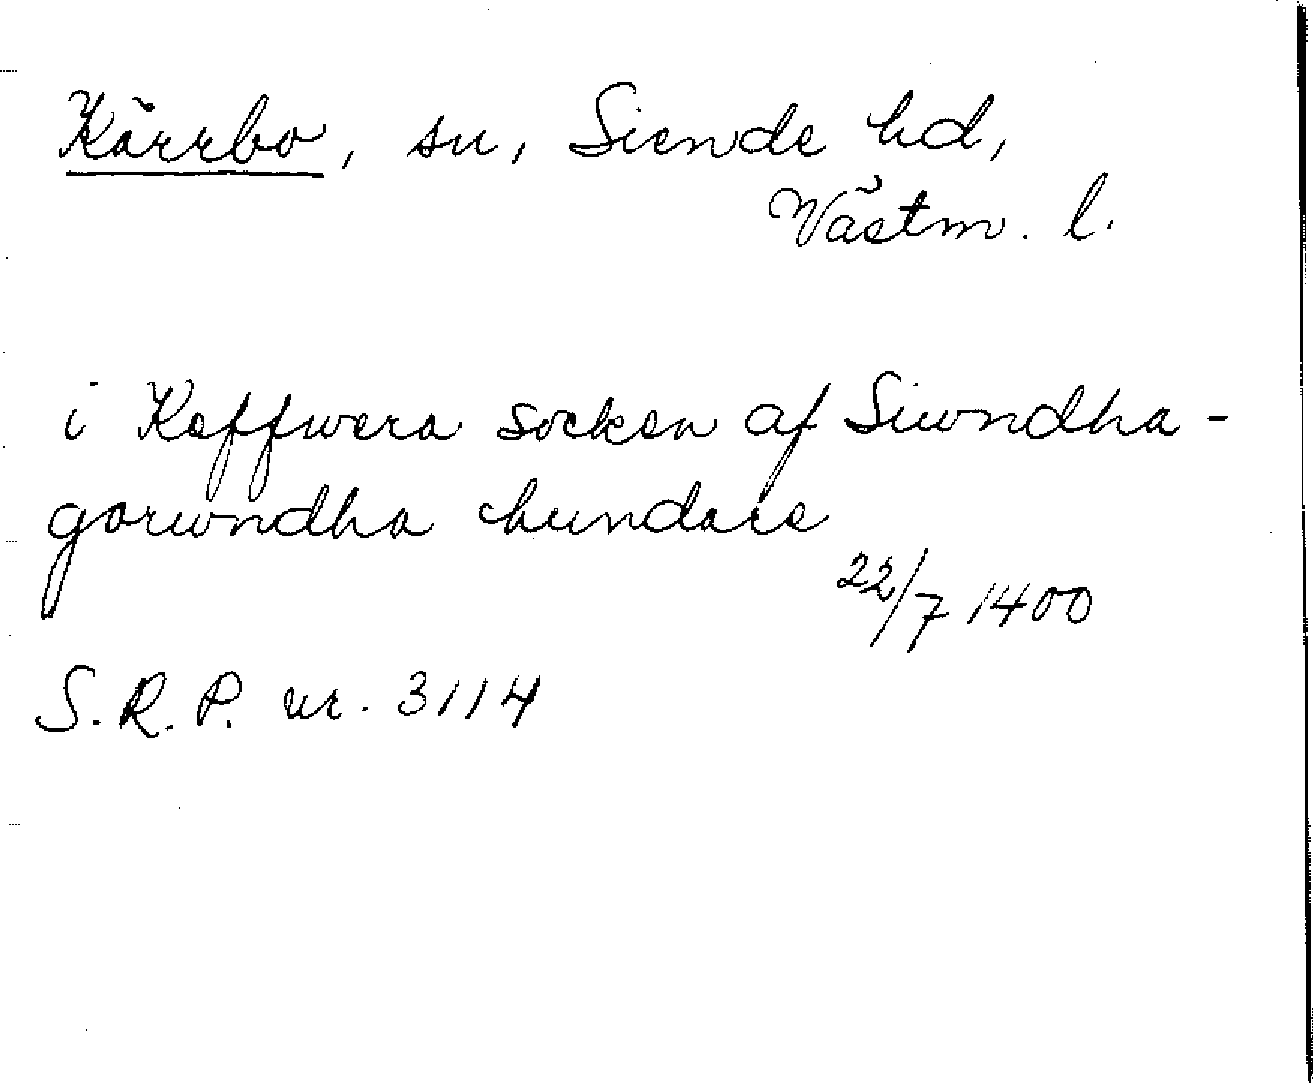 Kärrbo, sn, Siende hd,
Västm. l.
i Keffwera socken af Siwndha-
garwndha hundare
22/7 1400
S.R.P. nr. 3114